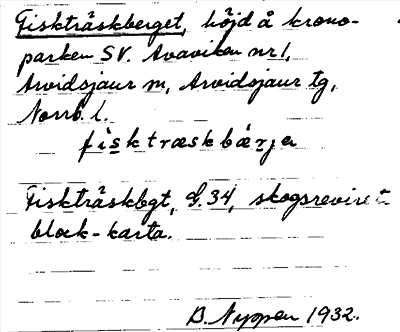 Fiskträskberget, höjd å krono-
parken SV. Avaviken nr 1,
Arvidsjaur sn, Arvidsjaur tg,
Norrb. l.
fisktræskbærja
Fiskträskbgt, G. 34, skogsrevirets
block-karta.
B. Nyppen 1932.